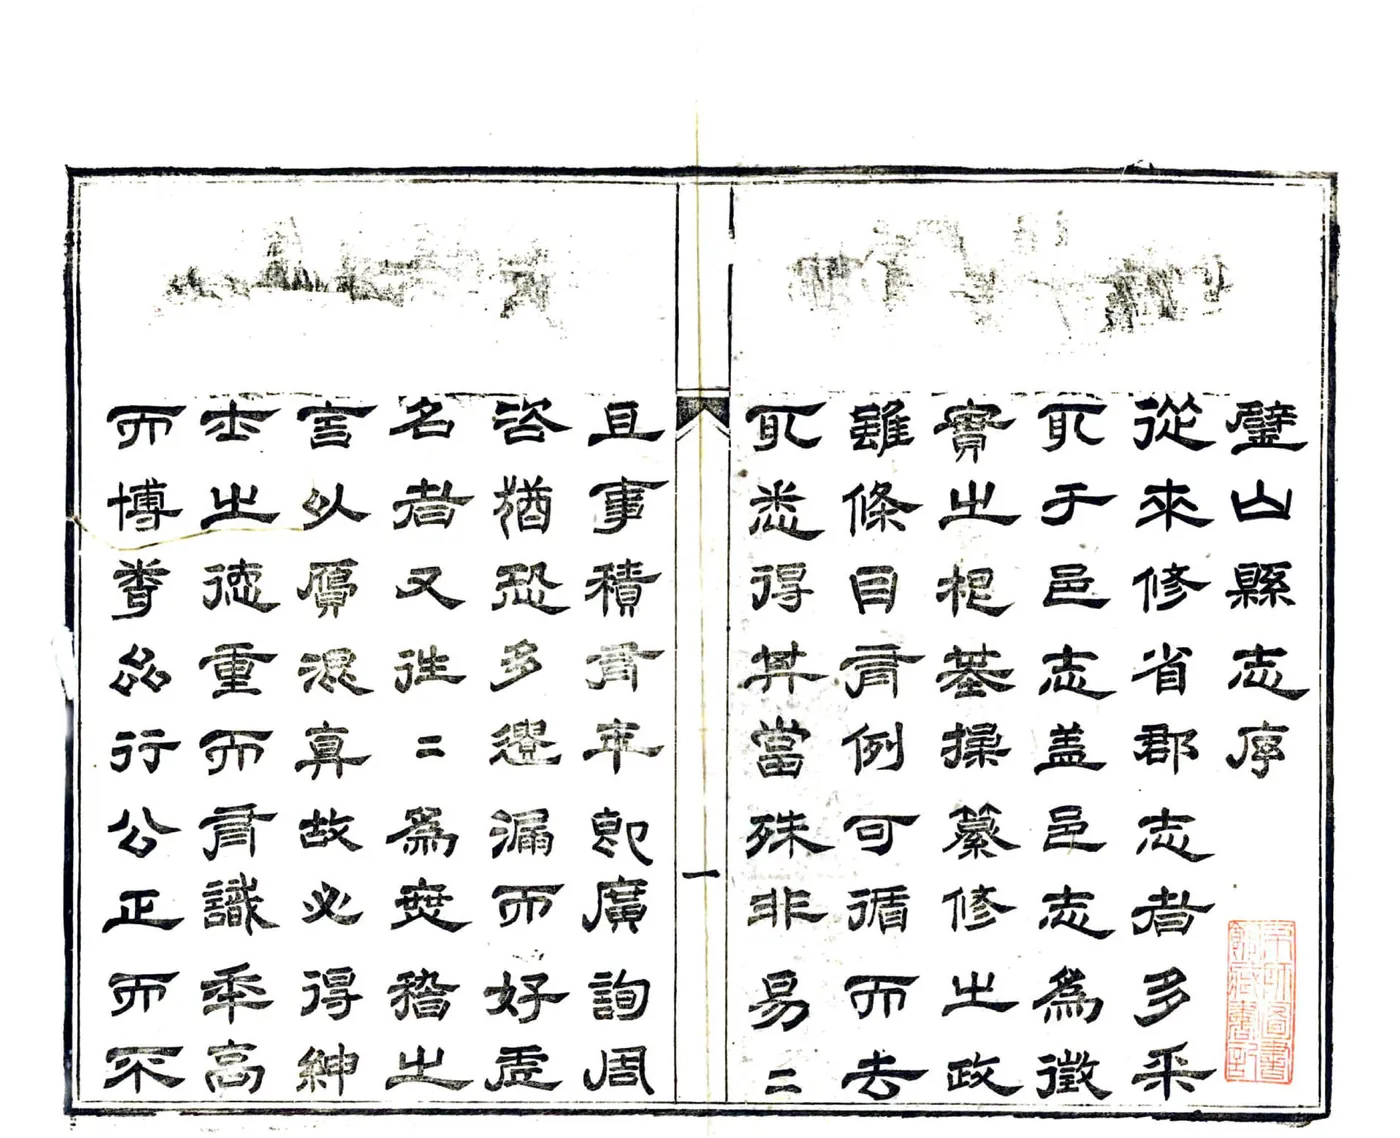 璧山縣志序
從來修省郡志者多采
取于邑志蓋邑志為徵
實之根基操纂修之政
雖條目有例可循而去
取悉得其當殊非易二
一
且事積有年即廣詢周
咨猶恐多遺漏而好虛
名者又往二為無稽之
言以贗混真故必得紳
士之德重而有識年高
而博聞品行公正而不